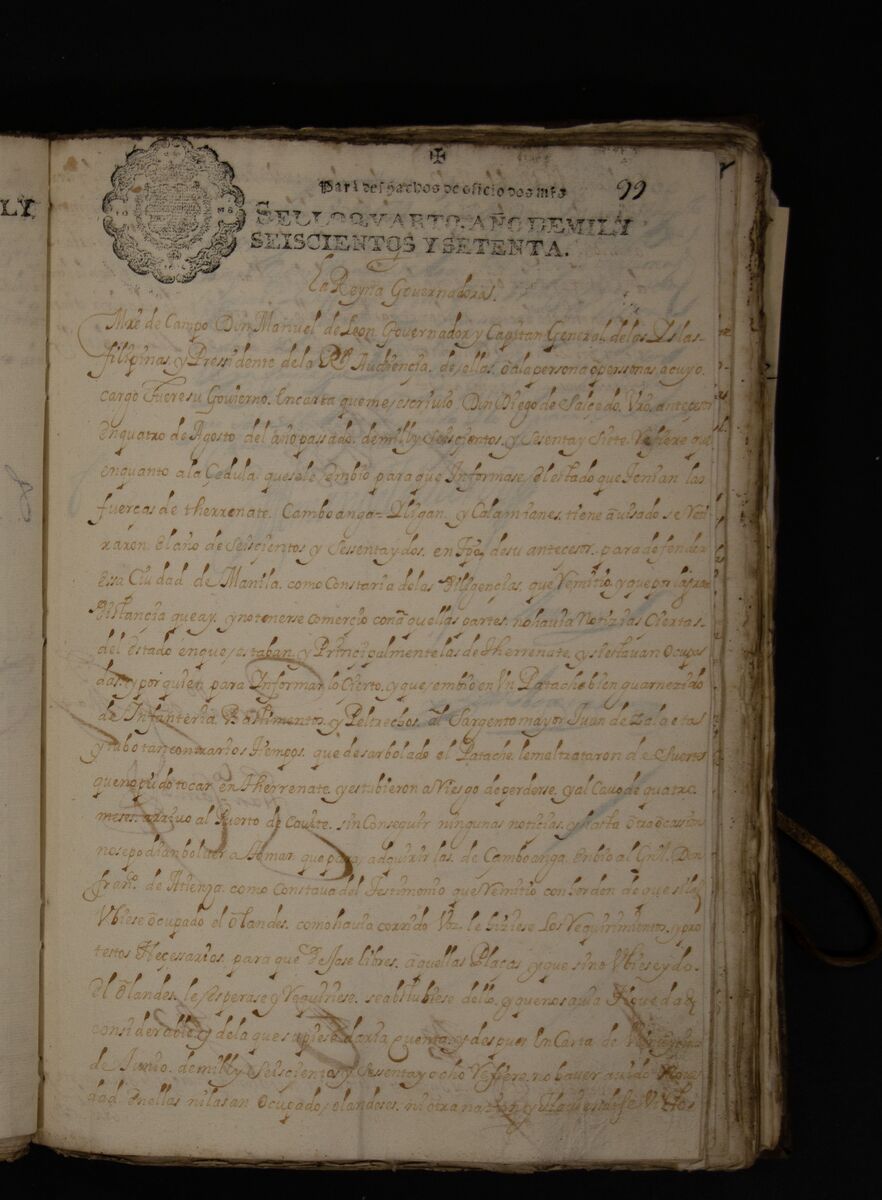 LY
✠
Para despachos de oficio dos mrs
99
SELLO QVARTO, AÑO DE MIL Y
SEISCIENTOS Y SETENTA.
La Reyna Governadora.
Mre de Campo Don Manuel de Leon Governador y Capitan General, de las Yslas
filipinas, y Pressidente de la Rl Audiencia, de ellas, o a la persona o personas, a cuyo
cargo Fuere su Govierno. En carta que me escrivio Don Diego de Salçedo, Vro. antecesor
en quatro de Agosto del año passado de mill y seiscientos, y Sesenta y Siete, Refiere que
en quanto a la Çedula que se le embio para que Informase, el estado que tenian las
fuerças de therrenate, Camboanga, Yligan, y Calamianes, tiene avisado se Reti
raron el año de Seiscientos y Sessenta y dos, en tpo, de su antecesor, para defender
essa Ciudad de Manila, como Constaria de las Diligencias, que Remitio, y que por la gran
distancia que ay, y no tenerse comercio con aquellas partes, no havia Noticias Ciertas,
del Estado en que estaban, y Principalmente las de therrenate, y si estavan Ocupa
das, y por quien, para Informar, lo Cierto, y que embio en Vn Patache bien guarnezido
de Infanteria Bastimentos, y Peltrechos, al Sargento mayor Juan de Zalaetas
y tubo tan contrarios tiempos, que desarbolado el Patache, le maltrataron de Suerte
que no pudo tocar en therrenate, y estubieron a Riesgo de perderse, y al Cavo de quatro
meses, arrivo al Puerto de Cavite, sin Conseguir ningunas noticias, y hasta otra ocassion
no se podian bolver a tomar, que para, adquirir las, de Camboanga, Enbio al Gnl. Don
franco. de Atiença, como Constava del Testimonio que Remitio con horden de que si las
Vbiese ocupado el olandes, como havia corrido Voz, le hiziese Los Requirimientos, y pro
testos Neçesarios, para que Dejase libres, aquellas Plaças, y que si no Vbiese ydo,
el olandes, le esperase y Requiriese, se abstubiese dello, y que no savia Novedad
considerable, y de la que supiese daria quenta, y despues En Carta de
de Junio, de mill y Seiscientos y Sessenta y ocho Reffiere, no haver avido Nove
dad en ellas ni las an Ocupado, olandeses, ni otra nacion,